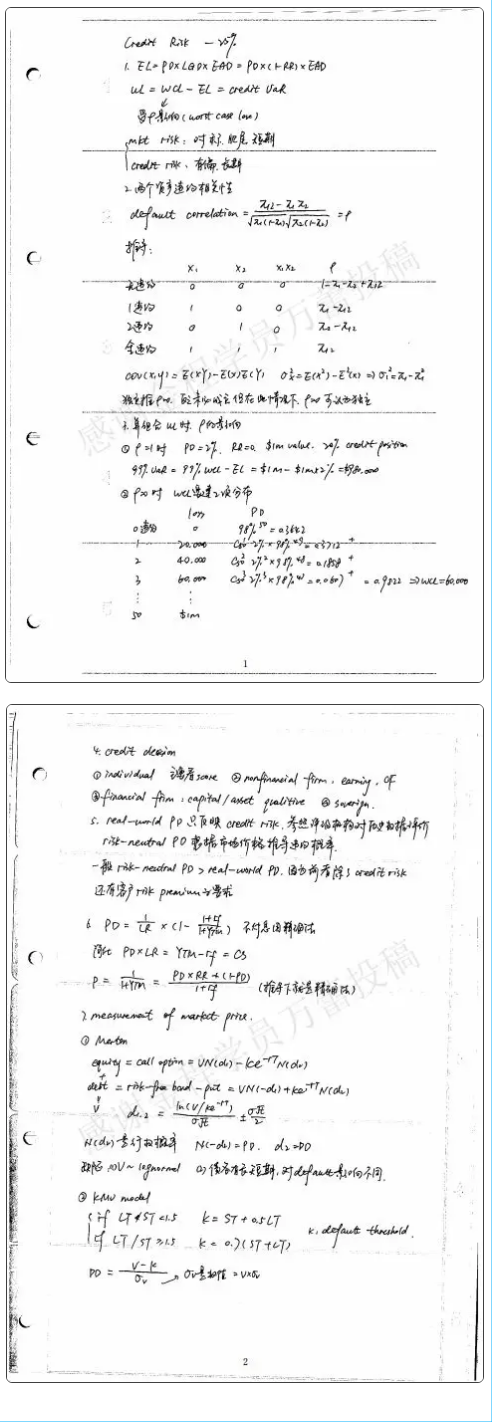 Credit Risk — 25%
1. EL = PD×LGD×EAD = PD×(1-RR)×EAD
UL = WCL - EL = credit VaR
受ρ影响 (worst case loss)
mkt risk: 对称, 肥尾 短期
credit risk: 有偏, 长期
2. 两个资产违约相关性
default correlation = π12 - π1π2 / √π1(1-π1) √π2(1-π2) = ρ
推导:
X1 X2 X1X2 ρ
无违约 0 0 0 1-π1-π2+π12
1违约 1 0 0 π1-π12
2违约 0 1 0 π2-π12
全违约 1 1 1 π12
cov(x,y) = E(XY) - E(X)E(Y) σx² = E(X²) - E²(X) ⇒ σ1² = π1-π1²
独立推ρ=0, 反之未必成立但在此情况下, ρ=0可认为独立
3. 算组合UL时, ρ的影响
① ρ=1时 PD=2%, RR=0, $1m value, credit position
99% VaR = 99% WCL - EL = $1m - $1m×2% = $980,000
② ρ=0时 WCL要建二项分布
loss PD
0违约 0 98%^50 = 0.3642
1 20,000 C50¹ 2%×98%^49 = 0.3716 +
2 40,000 C50² 2%²×98%^48 = 0.1858 +
3 60,000 C50³ 2%³×98%^47 = 0.0607 + = 0.9822 ⇒ WCL=60,000
⋮ ⋮
50 $1m
1
4. credit
① individual score ② nonfinancial firm, earning, CF
③ financial firm, capital/asset ④
5. real-world PD 只反映 credit risk, 参照评级机构对历史数据评价
risk-neutral PD 根据市场价格推导违约概率.
一般 risk-neutral PD > real-world PD, 因为前者除了credit risk
还有客户risk premium的要求
6. PD = 1/LR × (1 - 1+rf/1+YTM)
简化 PD×LR = YTM - rf = CS
P = 1/1+YTM = PD×RR+(1-PD) / 1+rf
7. measurement of market price.
① Merton
equity = call option = VN(d1) - Ke^-rT N(d2)
+
debt = risk-free bond - put = VN(-d1) + Ke^-rT N(d2)
V d1,2 = ln(V/Ke^-rT) / σ√T ± σ√T/2
N(d2) 是行权概率 N(-d2) = PD, d2 = DD
① V ~ lognormal ② 债务有长短期, 对default影响不同.
② KMV model
if LT/ST<1.5 K = ST + 0.5LT
if LT/ST≥1.5 K = 0.7(ST+LT) K: default threshold.
DD = V-K / σv
2
感谢金程学员万雷投稿
感谢金程学员万雷投稿